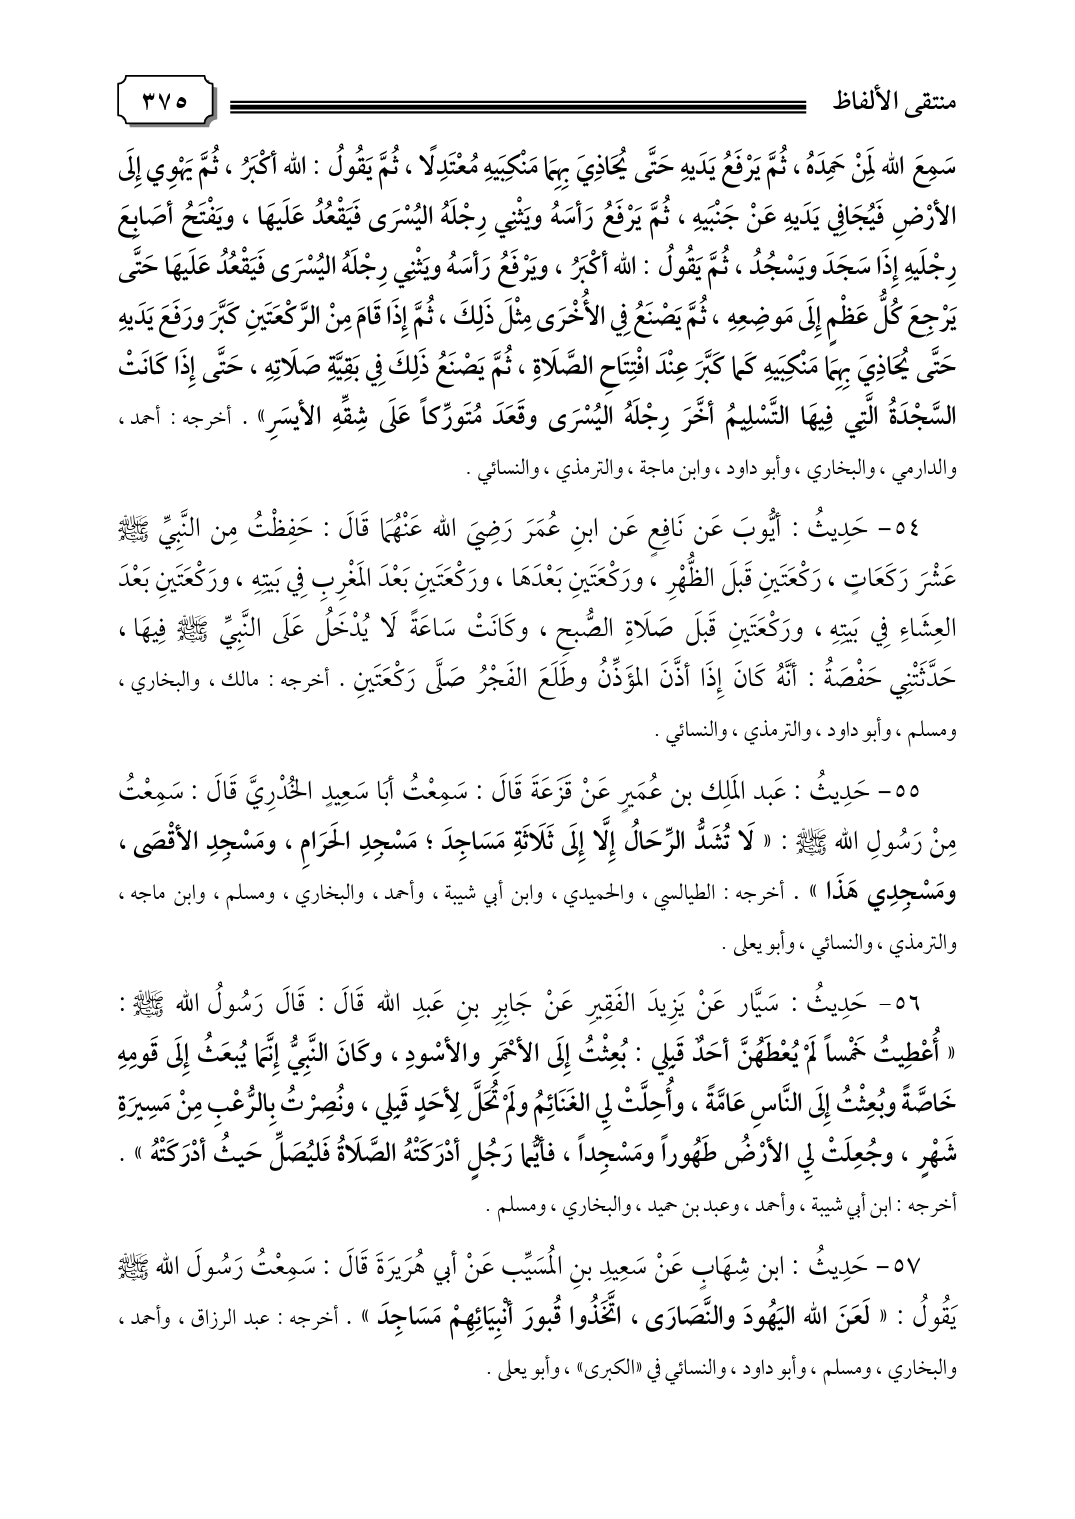 منتقى الألفاظ
٣٧٥
سَمِعَ الله لِمَنْ حَمِدَهُ ، ثُمَّ يَرْفَعُ يَدَيهِ حَتَّى يُحَاذِيَ بِهِمَا مَنْكِبَيهِ مُعْتَدِلًا ، ثُمَّ يَقُولُ : الله أكْبَرُ ، ثُمَّ يَهْوِي إِلَى
الأرْضِ فَيُجَافِي يَدَيهِ عَنْ جَنْبَيهِ ، ثُمَّ يَرْفَعُ رَأسَهُ ويَثْنِي رِجْلَهُ اليُسْرَى فَيَقْعُدُ عَلَيهَا ، ويَفْتَحُ أصَابِعَ
رِجْلَيهِ إِذَا سَجَدَ ويَسْجُدُ ، ثُمَّ يَقُولُ : الله أكْبَرُ ، ويَرْفَعُ رَأسَهُ ويَثْنِي رِجْلَهُ اليُسْرَى فَيَقْعُدُ عَلَيهَا حَتَّى
يَرْجِعَ كُلُّ عَظْمٍ إِلَى مَوضِعِهِ ، ثُمَّ يَصْنَعُ فِي الأُخْرَى مِثْلَ ذَلِكَ ، ثُمَّ إِذَا قَامَ مِنْ الرَّكْعَتَينِ كَبَّرَ ورَفَعَ يَدَيهِ
حَتَّى يُحَاذِيَ بِهِمَا مَنْكِبَيهِ كَما كَبَّرَ عِنْدَ افْتِتَاحِ الصَّلَاةِ ، ثُمَّ يَصْنَعُ ذَلِكَ فِي بَقِيَّةِ صَلَاتِهِ ، حَتَّى إِذَا كَانَتْ
السَّجْدَةُ الَّتِي فِيهَا التَّسْلِيمُ أخَّرَ رِجْلَهُ اليُسْرَى وقَعَدَ مُتَورِّكاً عَلَى شِقِّهِ الأيسَرِ» . أخرجه : أحمد ،
والدارمي ، والبخاري ، وأبو داود ، وابن ماجة ، والترمذي ، والنسائي .
٥٤- حَدِيثُ : أيُّوبَ عَن نَافِعٍ عَن ابنِ عُمَرَ رَضِيَ الله عَنْهُمَا قَالَ : حَفِظْتُ مِن النَّبِيِّ ﷺ
عَشْرَ رَكَعَاتٍ ، رَكْعَتَينِ قَبلَ الظُّهْرِ ، ورَكْعَتَينِ بَعْدَهَا ، ورَكْعَتَينِ بَعْدَ المَغْرِبِ فِي بَيتِهِ ، ورَكْعَتَينِ بَعْدَ
العِشَاءِ فِي بَيتِهِ ، ورَكْعَتَينِ قَبلَ صَلَاةِ الصُّبحِ ، وكَانَتْ سَاعَةً لَا يُدْخَلُ عَلَى النَّبِيِّ ﷺ فِيهَا ،
حَدَّثَتْنِي حَفْصَةُ : أنَّهُ كَانَ إِذَا أذَّنَ المؤَذِّنُ وطَلَعَ الفَجْرُ صَلَّى رَكْعَتَينِ . أخرجه : مالك ، والبخاري ،
ومسلم ، وأبو داود ، والترمذي ، والنسائي .
٥٥- حَدِيثُ : عَبد المَلِك بن عُمَيرٍ عَنْ قَزَعَةَ قَالَ : سَمِعْتُ أبَا سَعِيدٍ الخُدْرِيَّ قَالَ : سَمِعْتُ
مِنْ رَسُولِ الله ﷺ : « لَا تُشَدُّ الرِّحَالُ إِلَّا إِلَى ثَلَاثَةِ مَسَاجِدَ ؛ مَسْجِدِ الحَرَامِ ، ومَسْجِدِ الأقْصَى ،
ومَسْجِدِي هَذَا » . أخرجه : الطيالسي ، والحميدي ، وابن أبي شيبة ، وأحمد ، والبخاري ، ومسلم ، وابن ماجه ،
والترمذي ، والنسائي ، وأبو يعلى .
٥٦- حَدِيثُ : سَيَّار عَنْ يَزِيدَ الفَقِيرِ عَنْ جَابِرِ بنِ عَبدِ الله قَالَ : قَالَ رَسُولُ الله ﷺ :
« أُعْطِيتُ خَمْساً لَمْ يُعْطَهُنَّ أحَدٌ قَبلِي : بُعِثْتُ إِلَى الأحْمَرِ والأسْودِ ، وكَانَ النَّبِيُّ إِنَّمَا يُبعَثُ إِلَى قَومِهِ
خَاصَّةً وبُعِثْتُ إِلَى النَّاسِ عَامَّةً ، وأُحِلَّتْ لِي الغَنَائِمُ ولَمْ تُحَلَّ لِأحَدٍ قَبلِي ، ونُصِرْتُ بِالرُّعْبِ مِنْ مَسِيرَةِ
شَهْرٍ ، وجُعِلَتْ لِي الأرْضُ طَهُوراً ومَسْجِداً ، فأيُّما رَجُلٍ أدْرَكَتْهُ الصَّلَاةُ فَليُصَلِّ حَيثُ أدْرَكَتْهُ » .
أخرجه : ابن أبي شيبة ، وأحمد ، وعبد بن حميد ، والبخاري ، ومسلم .
٥٧- حَدِيثُ : ابن شِهَابٍ عَنْ سَعِيدِ بنِ المُسَيِّب عَنْ أبي هُرَيرَةَ قَالَ : سَمِعْتُ رَسُولَ الله ﷺ
يَقُولُ : « لَعَنَ الله اليَهُودَ والنَّصَارَى ، اتَّخَذُوا قُبورَ أنْبِيَائِهِمْ مَسَاجِدَ » . أخرجه : عبد الرزاق ، وأحمد ،
والبخاري ، ومسلم ، وأبو داود ، والنسائي في «الكبرى» ، وأبو يعلى .